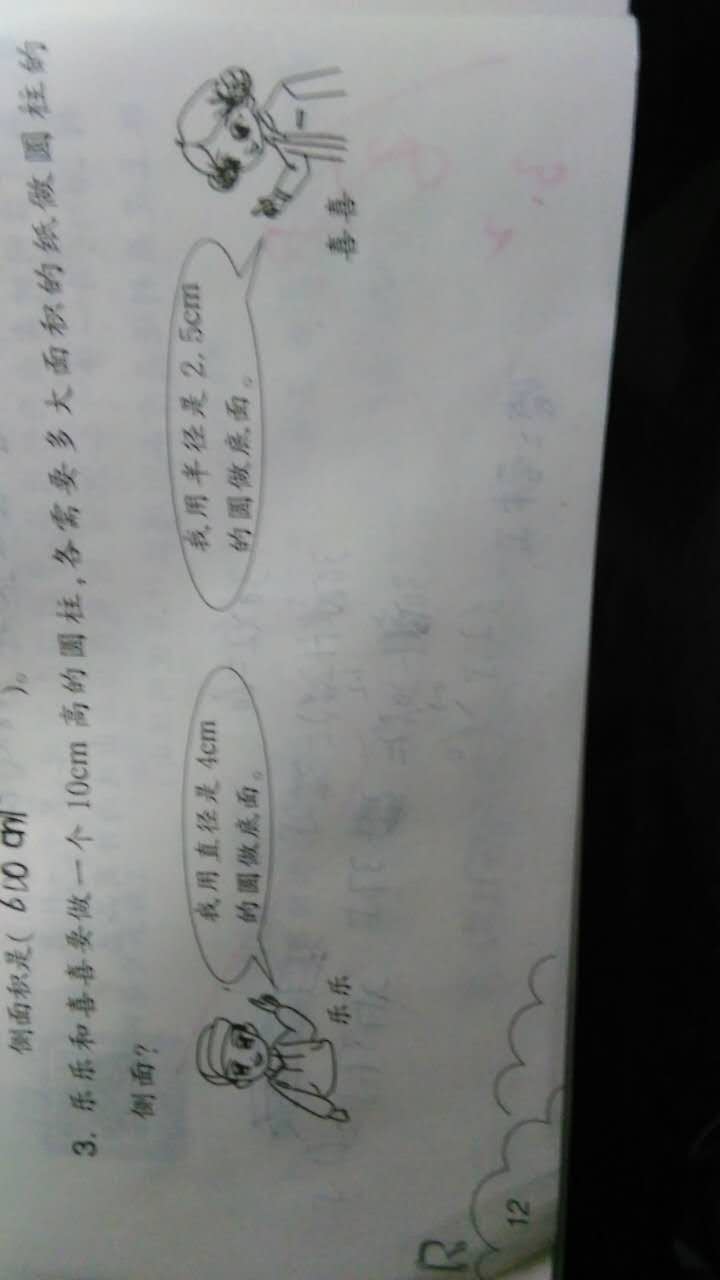 )。
侧面积是( 600 cm
3. 乐乐和喜喜要做一个10cm高的圆柱,各需要多大面积的纸做圆柱的
侧面?
我用直径是4cm
的圆做底面。
乐乐
我用半径是2.5cm
的圆做底面。
喜喜
R
12